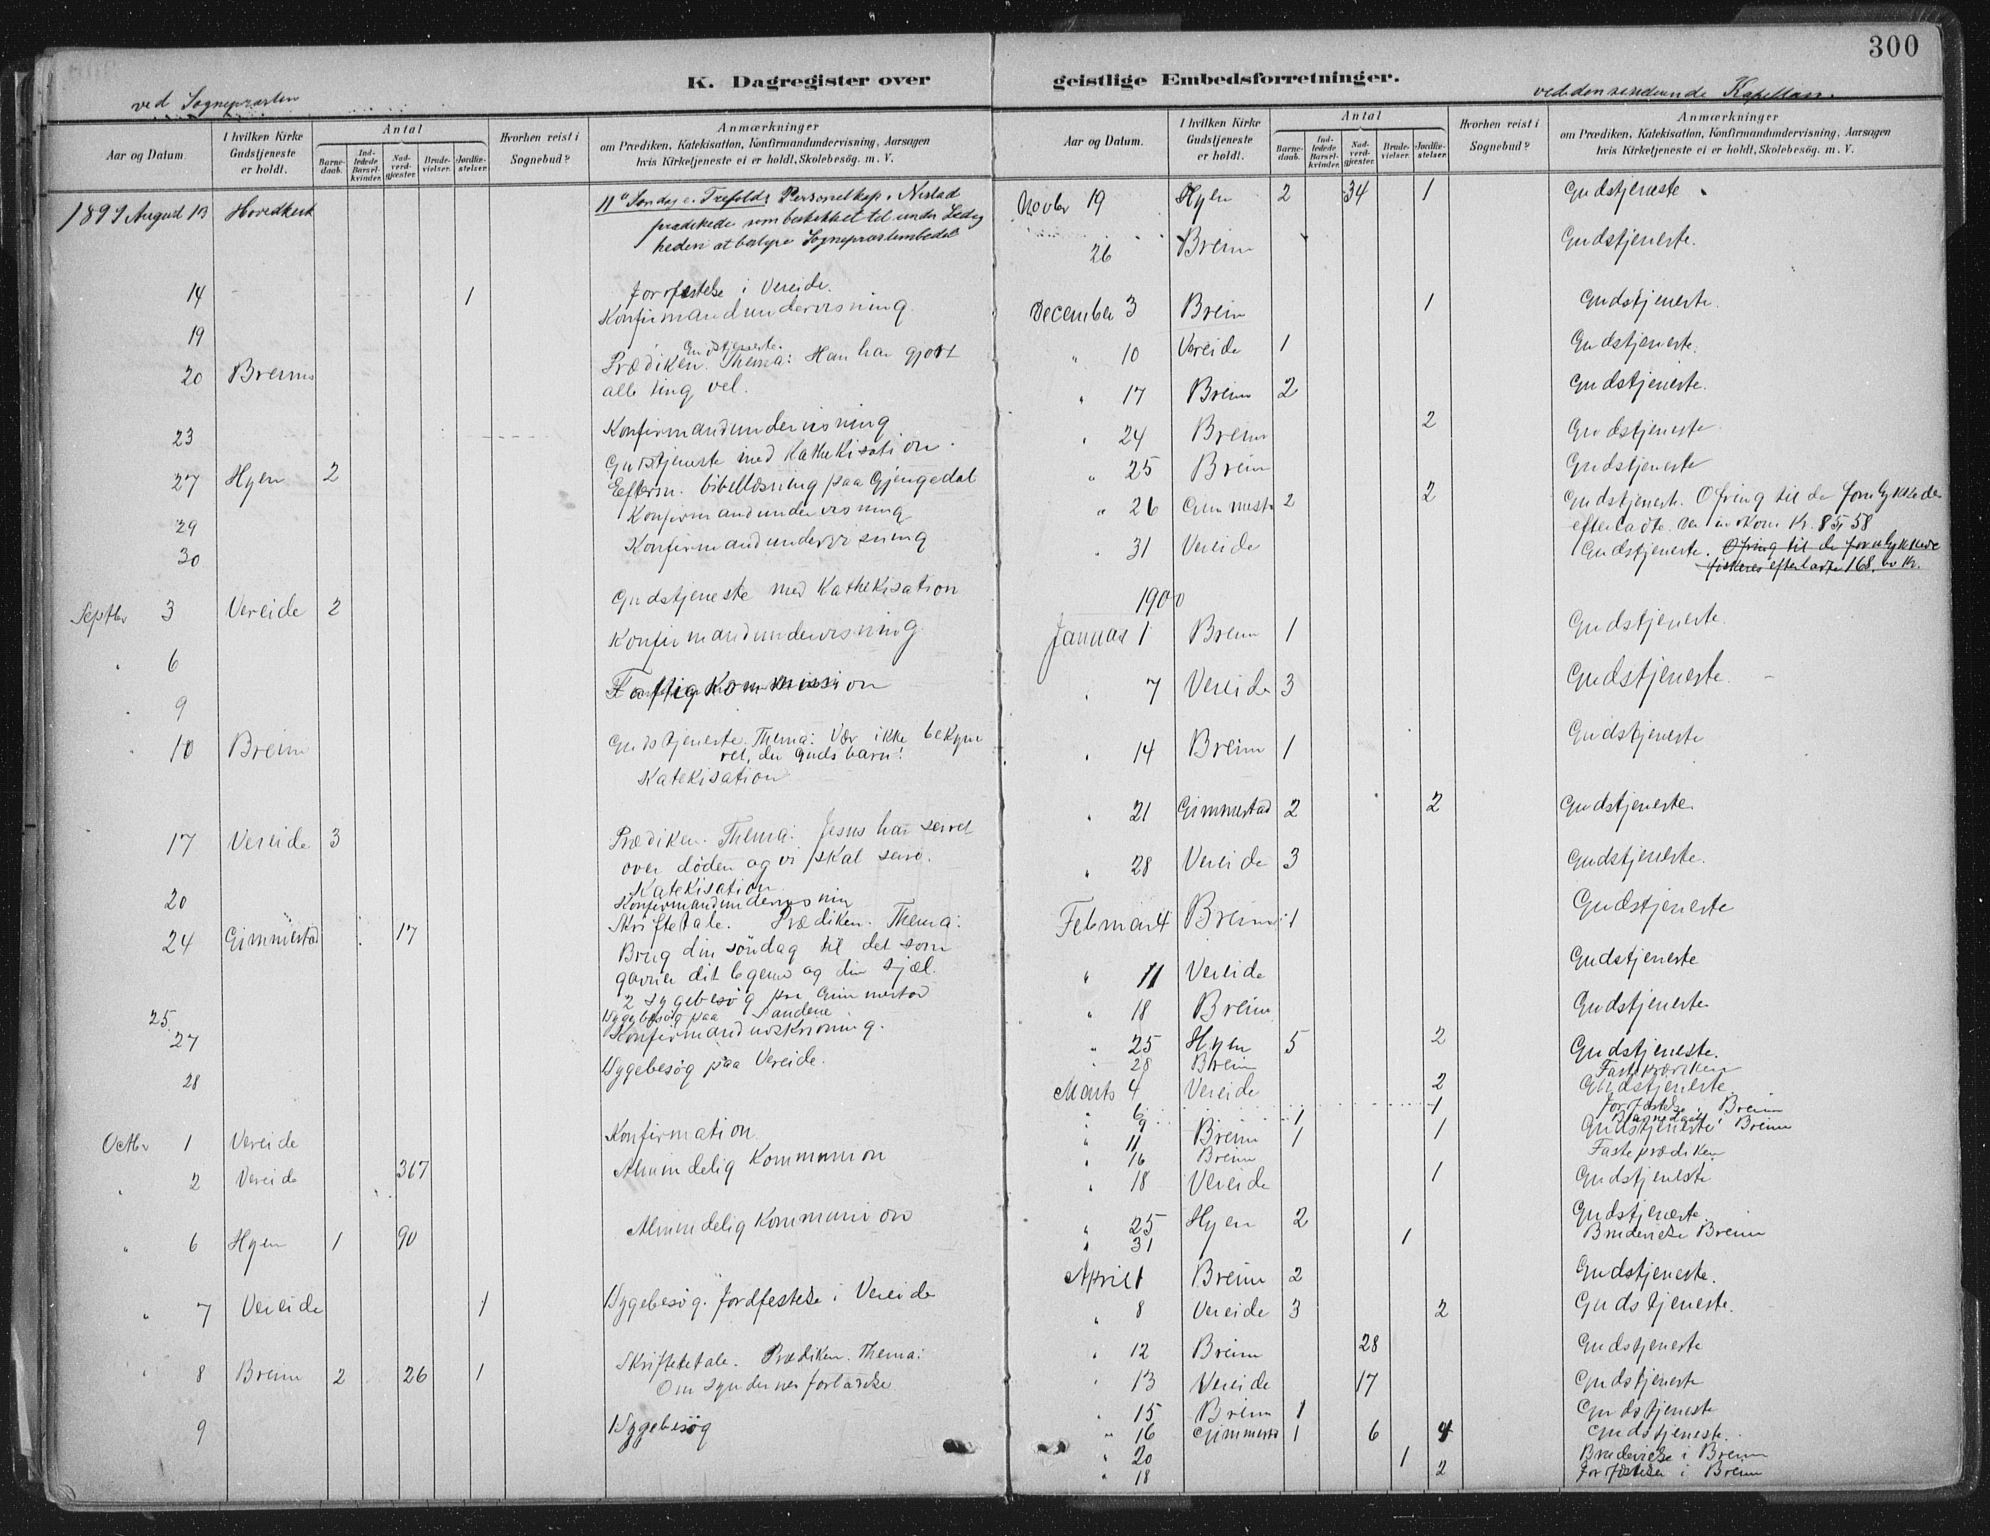 300
K. Dagregister over
ved Sognepræsten
Aar og Datum.
I hvilken Kirke Gudstjeneste er holdt.
Antal
Barnedaab.
Indledede Barselkvinder.
Nadverdgjæster.
Brudevielser.
Jordfæstelser.
Hvorhen reist i Sognebud?
Anmærkninger
om Prædiken, Katekisation, Konfirmandundervisning, Aarsagen
hvis Kirketjeneste ei er holdt, Skolebesøg. m. V.
1899 August 13 Hovedkirk 11te Søndag e. Trefold: Personelkap. Nistad
prædikede som beskikket til under Ledig
heden at bestyre Sognepræstembedet
14 1 Jordfestelse i Vereide.
19 Konfirmandundervisning.
Gudstjeneste.
20 Breim Prædiken. Thema: Han har gjort
alle ting vel.
23 Konfirmandundervisning.
27 Hyen 2 Gudstjeneste med Kathekisation.
Efterm. bibellæsning paa Gjengedal
29 Konfirmandundervisning
30 Konfirmandundervisning
Septbr 3 Vereide 2 Gudstjeneste med Kathekisation
" 6 Konfirmandundervisning.
" 9 Fattigkommission
" 10 Breim Gudstjeneste. Thema: Vær ikke bekym
ret, du Guds barn!
Katekisation
17 Vereide 3 Prædiken. Thema: Jesus har seiret
over døden og vi skal seire.
Katekisation
20 Konfirmandundervisning
24 Gimmestad 17 Skriftetale. Prædiken. Thema:
Brug din søndag til det som
gavner dit legeme og din sjæl.
2 sygebesøg paa Gimmestad
25. Sygebesøg paa Sandene
27 Konfirmandudskrivning.
28 Sygebesøg paa Vereide.
Octbr 1 Vereide Konfirmation
" 2 Vereide 367 Almindelig Kommunion
" 6 Hyen 1 90 Almindelig Kommunion
" 7 Vereide 1 Sygebesøg. Jordfestelse i Vereide
" 8 Breim 2 26 1 Skriftetale. Prædiken. Thema:
Om syndernes forladelse
9 Sygebesøg
geistlige Embedsforretninger.
ved den residerende Kapellan.
Aar og Datum.
I hvilken Kirke Gudstjeneste er holdt.
Antal
Barnedaab.
Indledede Barselkvinder.
Nadverdgjæster.
Brudevielser.
Jordfæstelser.
Hvorhen reist i Sognebud?
Anmærkninger
om Prædiken, Katekisation, Konfirmandundervisning, Aarsagen
hvis Kirketjeneste ei er holdt, Skolebesøg. m. V.
Novbr 19 Hyen 2 34 1 Gudstjeneste
26 Breim Gudstjeneste.
December 3 Breim 1 Gudstjeneste.
" 10 Vereide 1 Gudstjeneste.
" 17 Breim 2 Gudstjeneste.
" 24 Breim 2 Gudstjeneste
" 25 Breim Gudstjeneste
" 26 Gimmestd 2 2 Gudstjenest. Ofring til de forulykkedes
efterladte. Kr. 85,58
" 31 Vereide Gudstjeneste. Ofring til de forulykkede
fiskeres efterladte 168, Kr.
1900
Januar 1 Breim 1 Gudstjeneste.
" 7 Vereide 3 Gudstjeneste.
" 14 Breim 1 Gudstjeneste
" 21 Gimmestad 2 2 Gudstjeneste
" 28 Vereide 3 Gudstjeneste.
Februar 4 Breim 1 Gudstjeneste
" 11 Vereide Gudstjeneste
" 18 Breim Gudstjeneste
" 25 Hyen 5 2 Gudstjeneste.
" 28 Breim Fasteprædiken
Marts 4 Vereide 2 Gudstjeneste
" 6 1 Jordfæstelse i Breim
" 9 1 Barnedaab i Breim
" 11 Breim 1 1 Gudstjeneste
" 16 Breim Fasteprædiken
" 18 Vereide 1 Gudstjeneste
" 25 Hyen 2 Gudstjeneste
" 31 1 Brudevielse Breim
April 1 Breim 2 Gudstjeneste.
" 8 Vereide 3 2 Gudstjeneste.
" 12 Breim 28 Gudstjeneste
" 13 Vereide 17 Gudstjeneste
" 15 Breim 1 Gudstjeneste
" 16 Gimmestd 1 6 4 Gudstjeneste.
" 20 1 Brudevielse i Breim
" 18 2 Jordfæstelse i Breim